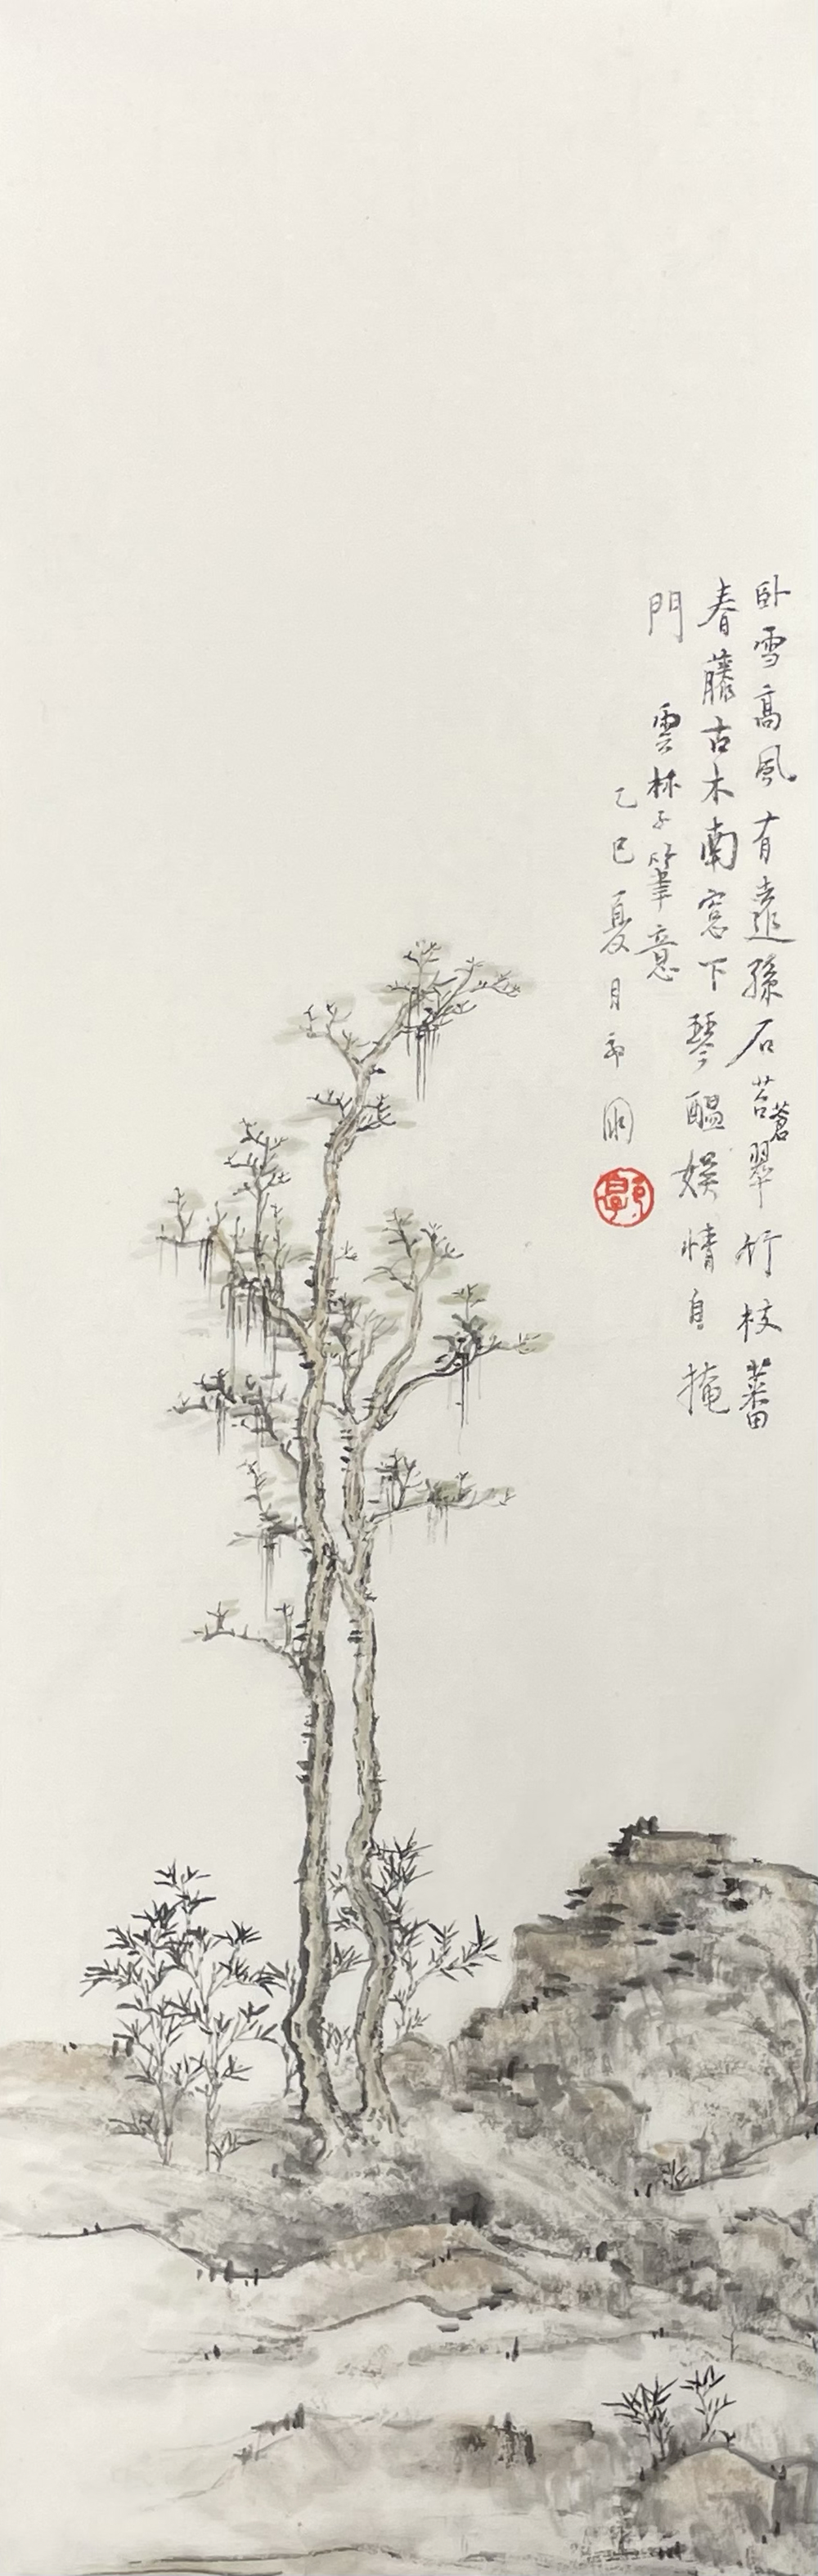 卧雪高風有遠孫石苔蒼翠竹枝蕃
春藤古木南窓下琴醖娛情自掩
門 雲林子筆意
乙巳夏月
郭